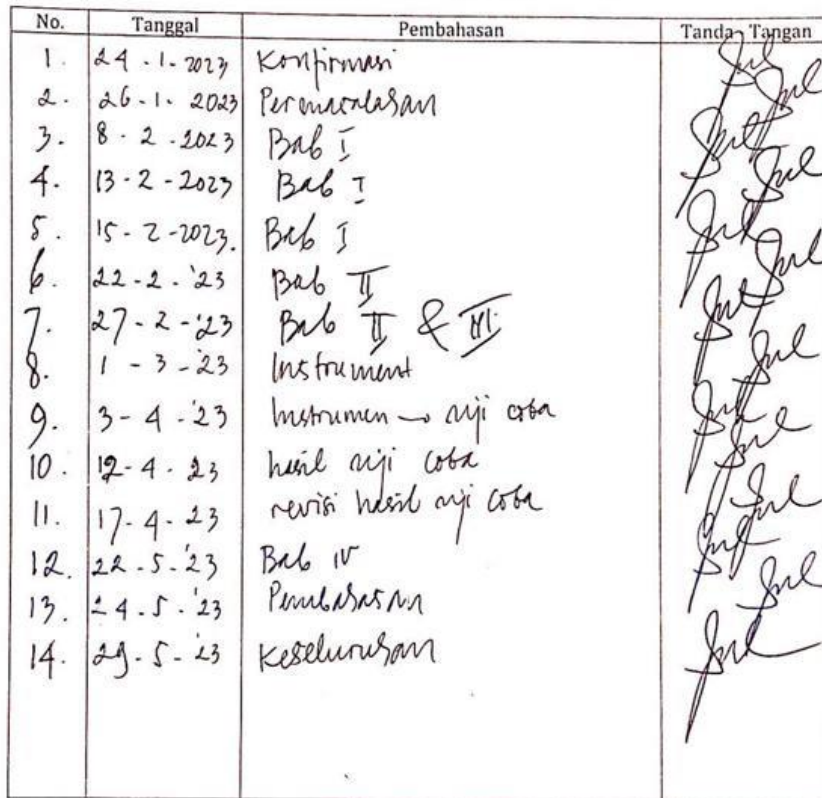 No. Tanggal Pembahasan Tanda Tangan
1. 24 - 1 - 2023 Konfirmasi
2. 26 - 1 - 2023 Permasalahan
3. 8 - 2 - 2023 Bab I
4. 13 - 2 - 2023 Bab I
5. 15 - 2 - 2023. Bab I
6. 22 - 2 - '23 Bab II
7. 27 - 2 - '23 Bab II & III
8. 1 - 3 - '23 Instrument
9. 3 - 4 - '23 Instrumen → uji coba
10. 12 - 4 - 23 hasil uji coba
11. 17 - 4 - 23 revisi hasil uji coba
12. 22 - 5 - '23 Bab IV
13. 24 - 5 - '23 Pembahasan
14. 29 - 5 - '23 Keseluruhan